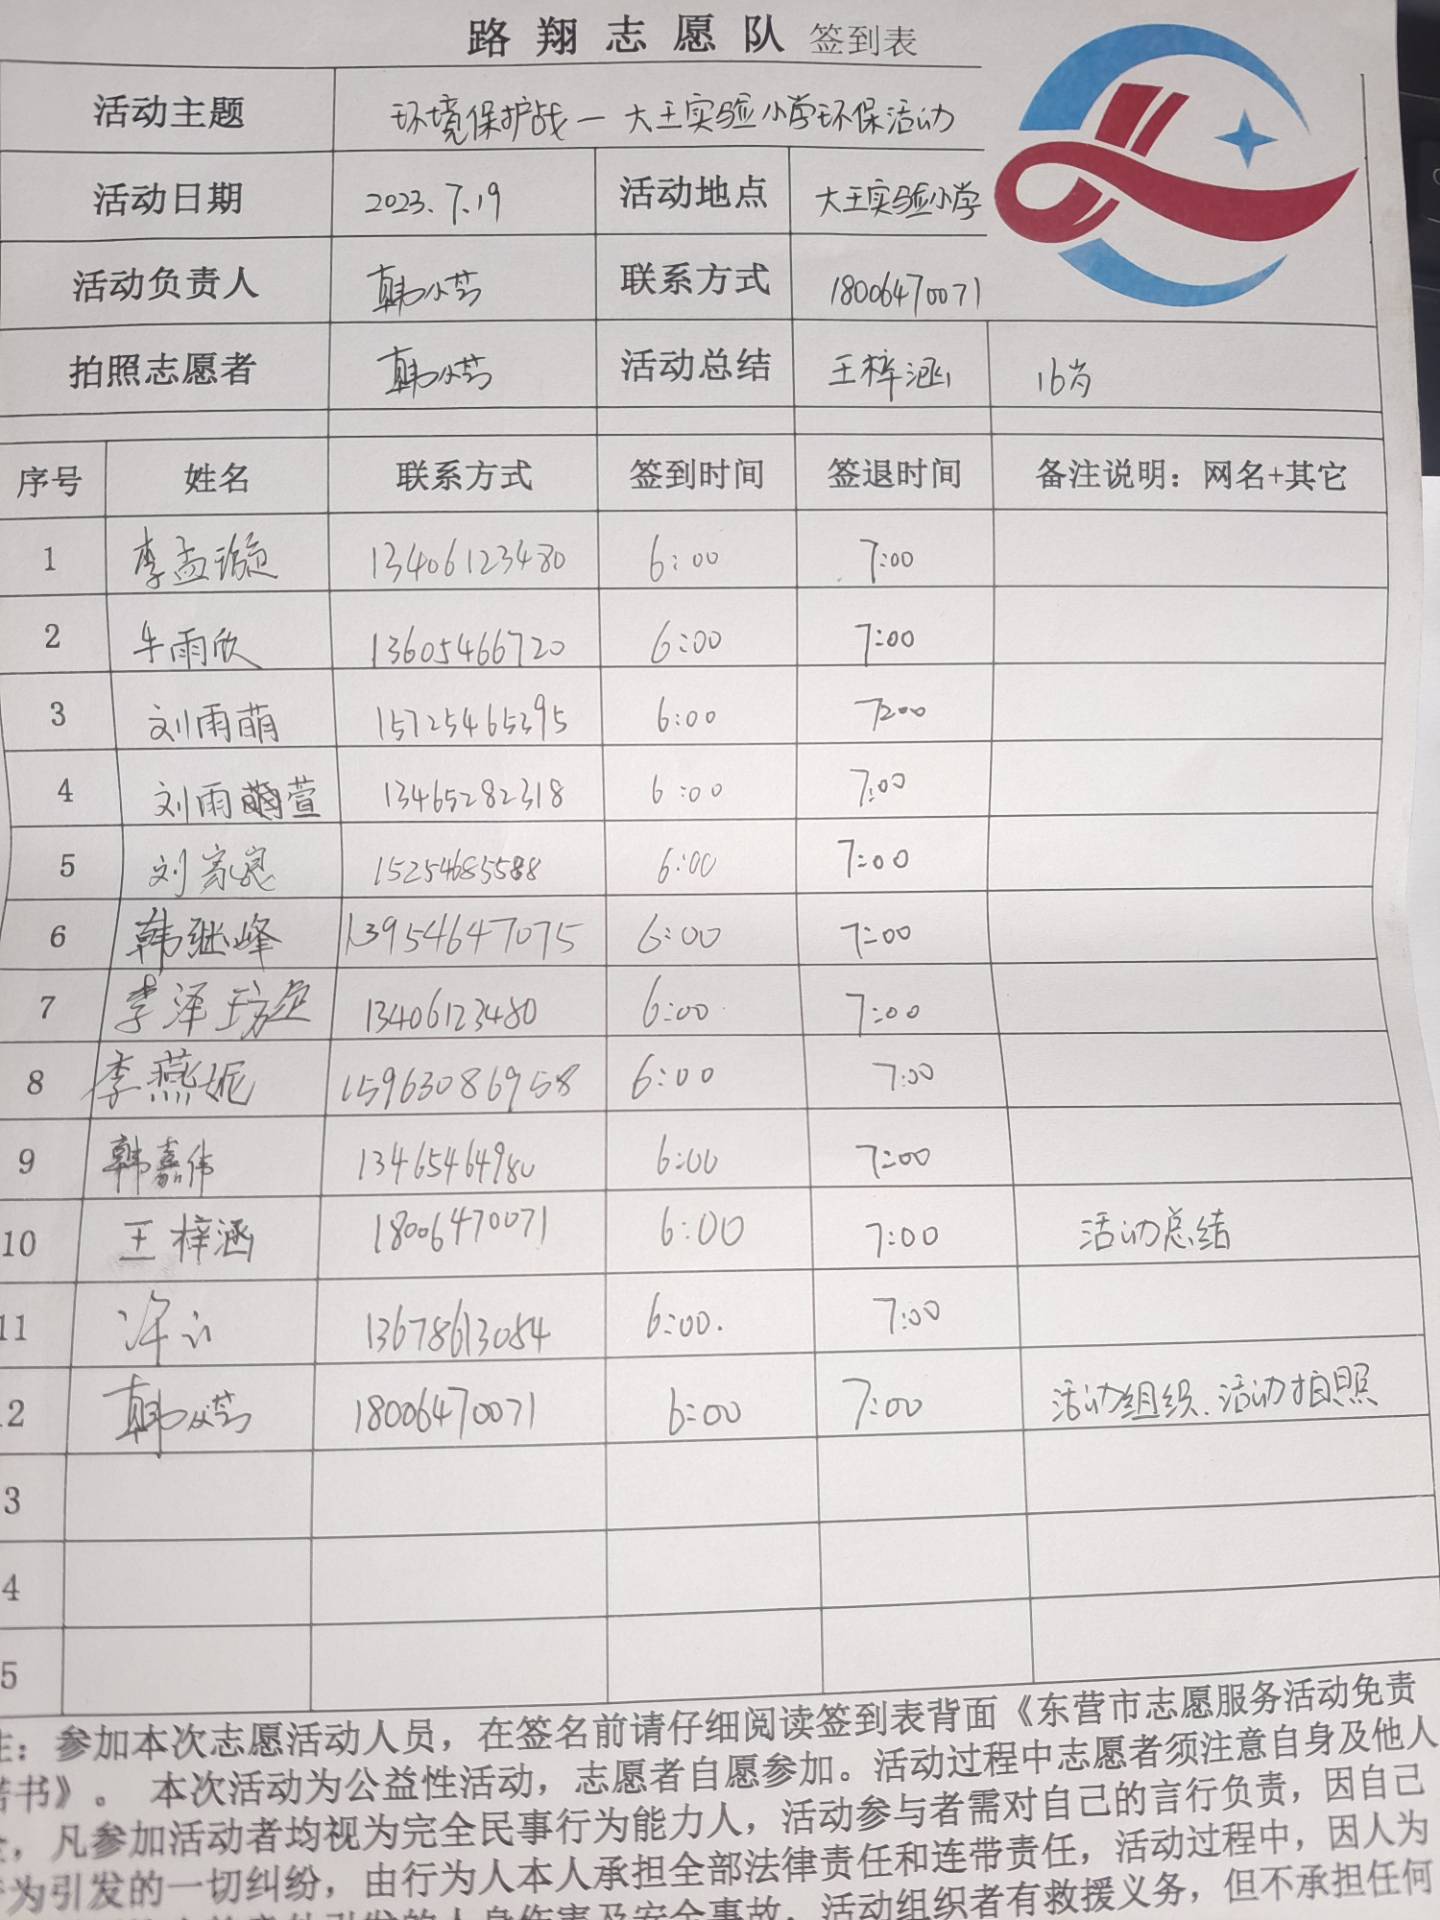 路翔志愿队 签到表
活动主题 环境保护战一大王实验小学环保活动
活动日期 2023.7.19 活动地点 大王实验小学
活动负责人 韩小芸 联系方式 18006470071
拍照志愿者 韩小芸 活动总结 王梓涵 16岁
序号 姓名 联系方式 签到时间 签退时间 备注说明：网名+其它
1 李孟璇 13406123480 6:00 7:00
2 牛雨欣 13605466720 6:00 7:00
3 刘雨萌 15725465395 6:00 7:00
4 刘雨萱 13465282318 6:00 7:00
5 刘家 15254685588 6:00 7:00
6 韩继峰 13954647075 6:00 7:00
7 李泽 13406123480 6:00 7:00
8 李燕妮 15963086958 6:00 7:00
9 韩嘉伟 13465464980 6:00 7:00
10 王梓涵 18006470071 6:00 7:00 活动总结
11 13678613084 6:00. 7:00
2 韩小芸 18006470071 6:00 7:00 活动组织、活动拍照
3
4
5
注：参加本次志愿活动人员，在签名前请仔细阅读签到表背面《东营市志愿服务活动免责
诺书》。 本次活动为公益性活动，志愿者自愿参加。活动过程中志愿者须注意自身及他人
，凡参加活动者均视为完全民事行为能力人，活动参与者需对自己的言行负责，因自己
为引发的一切纠纷，由行为人本人承担全部法律责任和连带责任，活动过程中，因人为
引发的人身伤害及安全事故，活动组织者有救援义务，但不承担任何